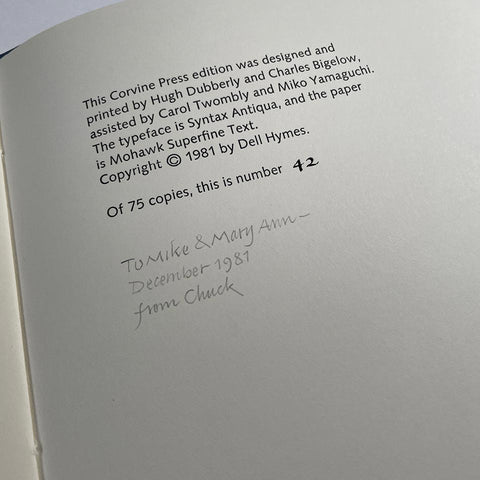 This Corvine Press edition was designed and
printed by Hugh Dubberly and Charles Bigelow,
assisted by Carol Twombly and Miko Yamaguchi.
The typeface is Syntax Antiqua, and the paper
is Mohawk Superfine Text.
Copyright © 1981 by Dell Hymes.
Of 75 copies, this is number 42
To Mike & Mary Ann—
December 1981
from Chuck